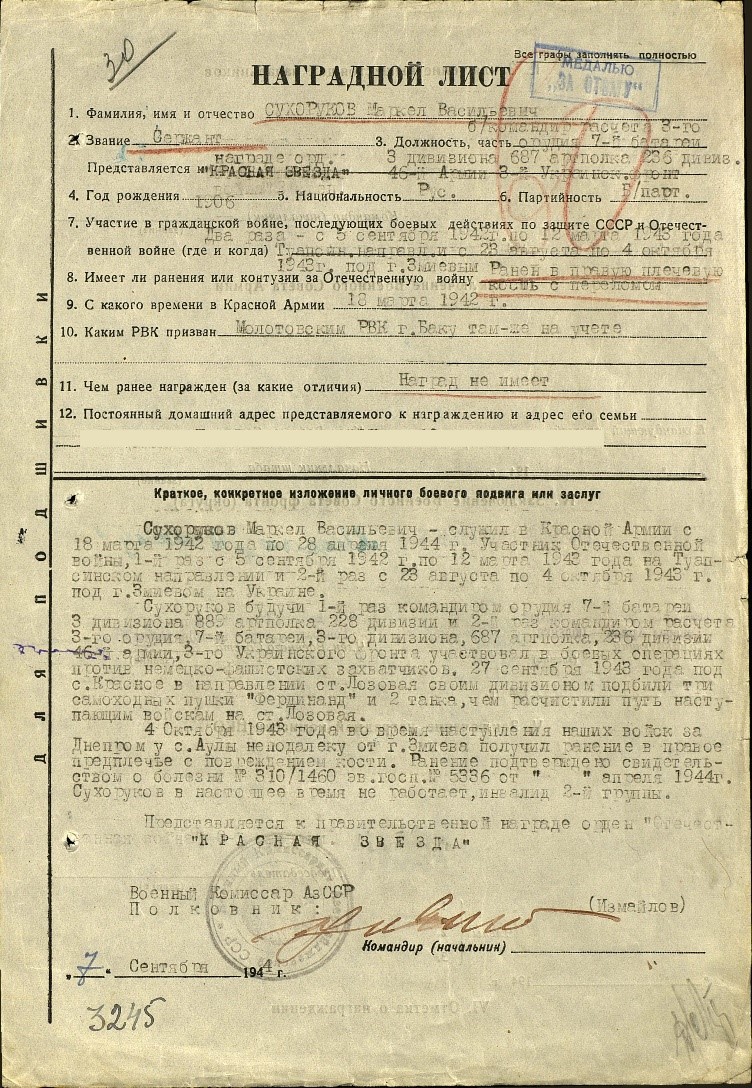 30
Все графы заполнять полностью
МЕДАЛЬЮ
„ЗА ОТВАГУ“
НАГРАДНОЙ ЛИСТ
1. Фамилия, имя и отчество СУХОРУКОВ Маркел Васильевич
б/командир расчета 3-го
2. Звание Сержант 3. Должность, часть орудия 7-й батареи
награде орд. 3 дивизиона 687 артполка 236 дивиз.
Представляется к "КРАСНАЯ ЗВЕЗДА" 46-й Армии 3-й Украинск. фронт
4. Год рождения 1906 5. Национальность Рус. 6. Партийность Б/парт.
7. Участие в гражданской войне, последующих боевых действиях по защите СССР и Отечест-
Два раза - с 5 сентября 1942г. по 12 марта 1943 года
венной войне (где и когда) Туапсин. направл. и с 23 августа по 4 октября
1943г. под г.Змиевым Ранен в правую плечевую
8. Имеет ли ранения или контузии за Отечественную войну кость с переломом
9. С какого времени в Красной Армии 18 марта 1942 г.
10. Каким РВК призван Молотовским РВК г.Баку там-же на учете
11. Чем ранее награжден (за какие отличия) Наград не имеет
12. Постоянный домашний адрес представляемого к награждению и адрес его семьи
ДЛЯ ПОДШИВКИ
Краткое, конкретное изложение личного боевого подвига или заслуг
Сухоруков Маркел Васильевич - служил в Красной Армии с
18 марта 1942 года по 28 апреля 1944 г. Участник Отечественной
войны, 1-й раз с 5 сентября 1942 г. по 12 марта 1943 года на Туап-
синском направлении и 2-й раз с 23 августа по 4 октября 1943 г.
под г.Змиевом на Украине.
Сухоруков будучи 1-й раз командиром орудия 7-й батареи
3 дивизиона 885 артполка 228 дивизии и 2-й раз командиром расчета
3-го орудия, 7-й батареи, 3-го дивизиона, 687 артполка, 236 дивизии
46-й армии, 3-го Украинского фронта участвовал в боевых операциях
против немецко-фашистских захватчиков. 27 сентября 1943 года под
с.Красное в направлении ст.Лозовая своим дивизионом подбили три
самоходных пушки "Фердинанд" и 2 танка, чем расчистили путь насту-
пающим войскам на ст.Лозовая.
4 Октября 1943 года во время наступления наших войск за
Днепром у с.Аулы неподалеку от г.Змиева получил ранение в правое
предплечье с повреждением кости. Ранение подтверждено свидетель-
ством о болезни № 310/1460 эв.госп.№ 5336 от " " апреля 1944г.
Сухоруков в настоящее время не работает, инвалид 2-й группы.
Представляется к правительственной награде орден "Отечест-
"КРАСНАЯ ЗВЕЗДА"
Военный Комиссар АзССР
Полковник: (Измайлов)
Командир (начальник)
„7“ Сентября 1944 г.
3245